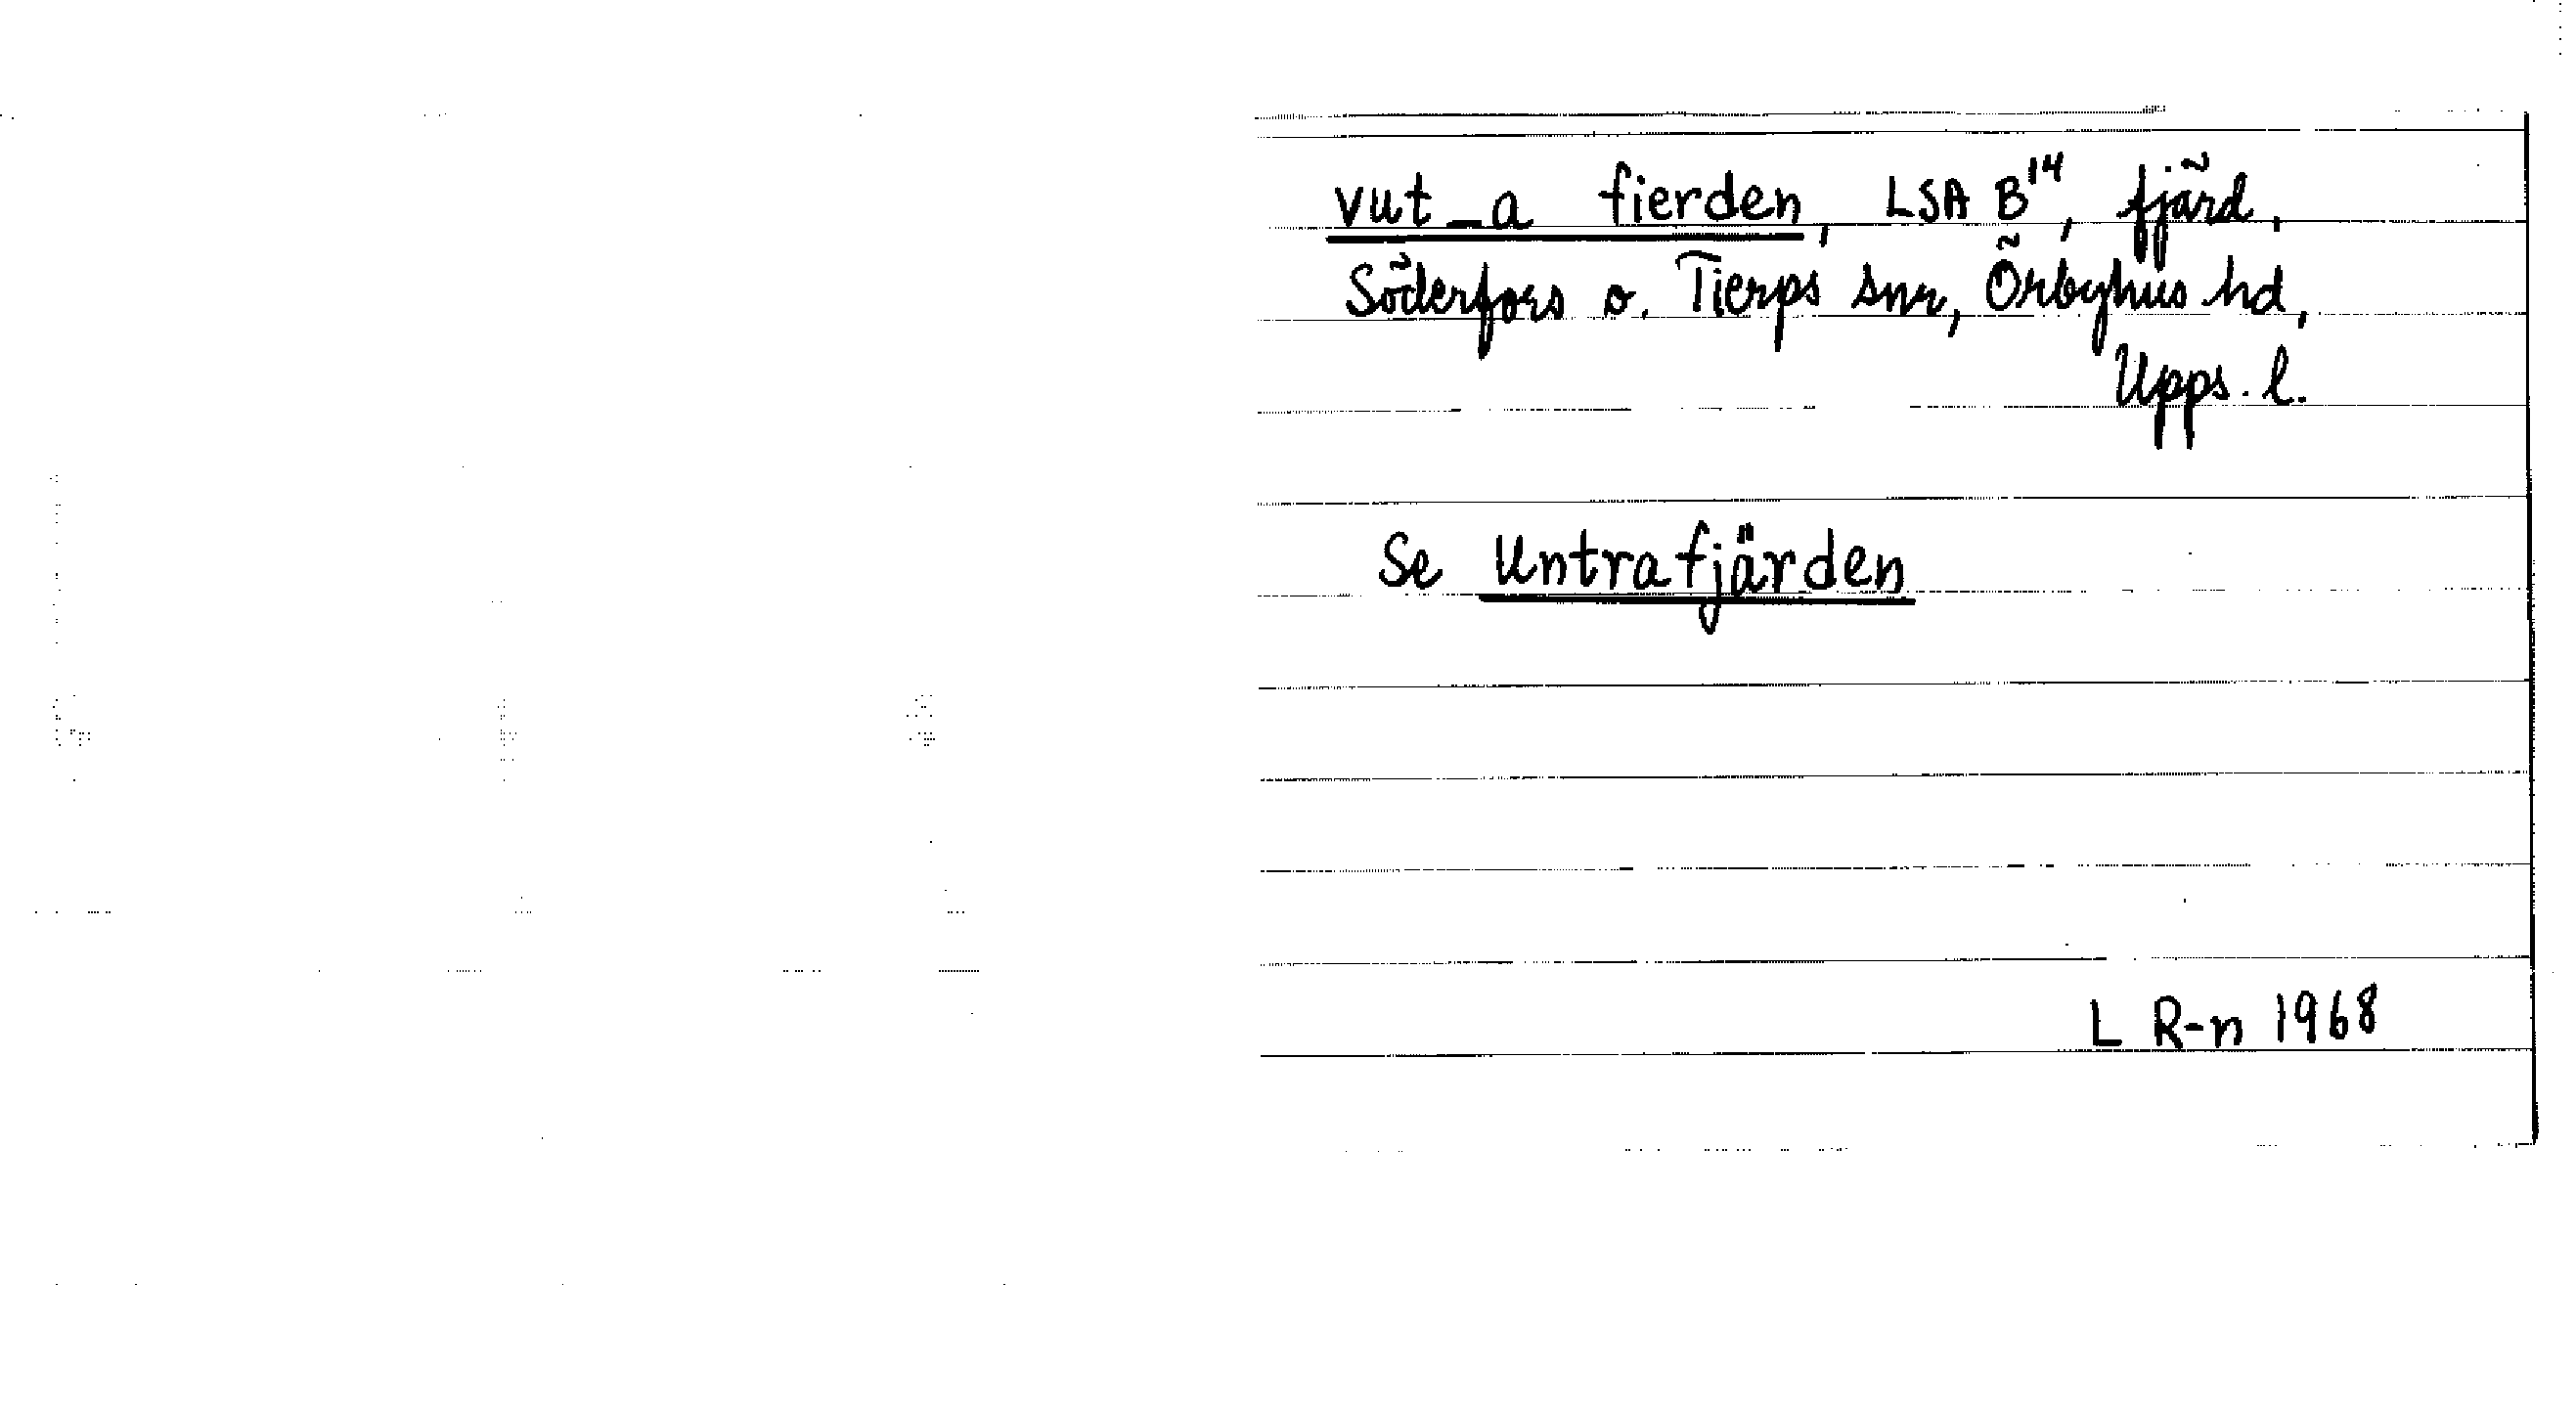 vut_a fierden, LSA B¹⁴, fjärd,
Söderfors o. Tierps snr, Örbyhus hd,
Upps. l.
Se Untrafjärden
L R-n 1968